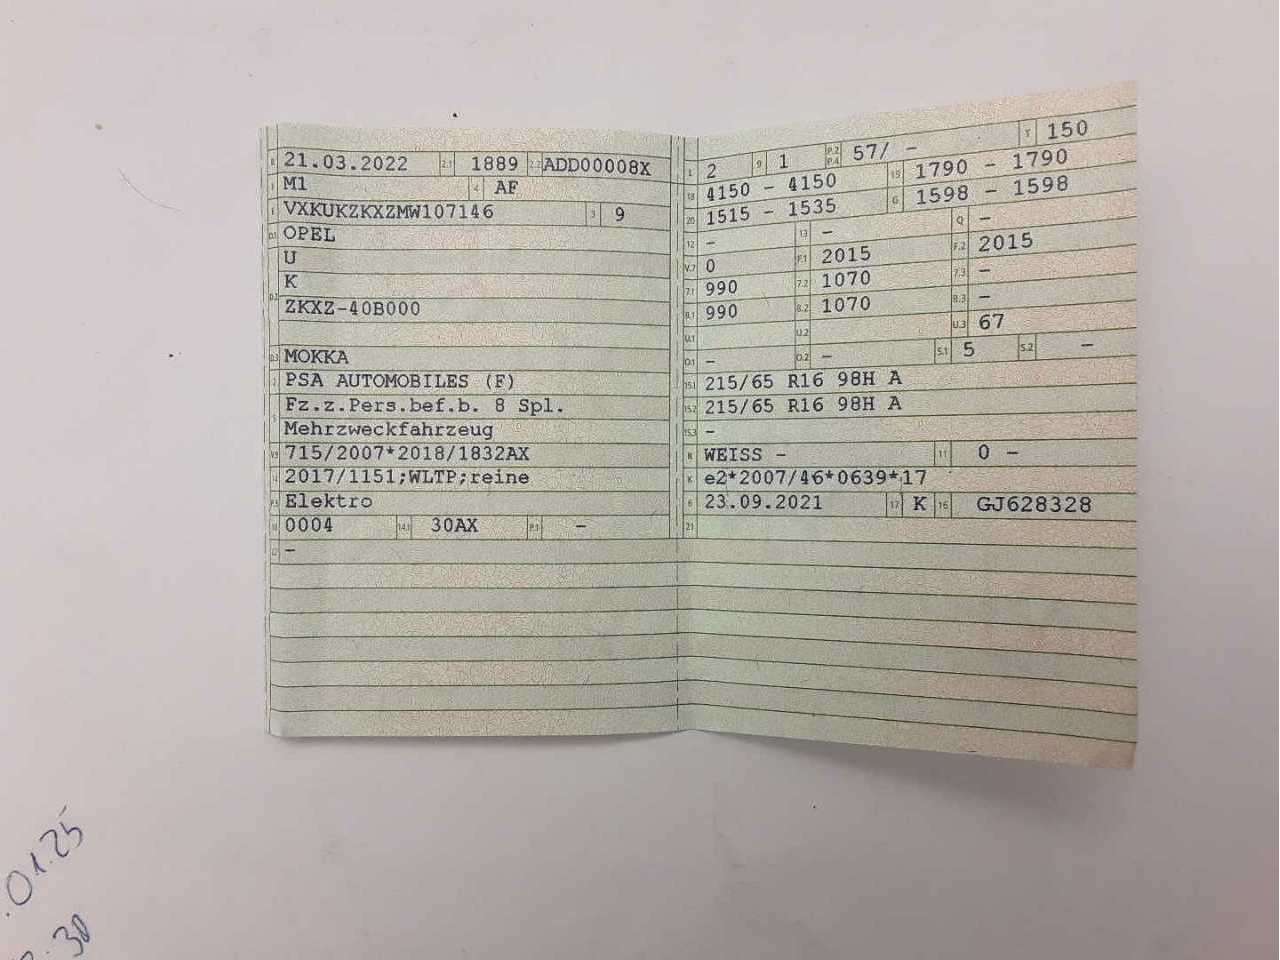 B 21.03.2022 2.1 1889 2.2 ADD00008X
J M1 4 AF
E VXKUKZKXZMW107146 3 9
D.1 OPEL
U
D.2 K
ZKXZ-40B000
D.3 MOKKA
2 PSA AUTOMOBILES (F)
5 Fz.z.Pers.bef.b. 8 Spl.
Mehrzweckfahrzeug
V.9 715/2007*2018/1832AX
14 2017/1151;WLTP;reine
P.3 Elektro
10 0004 14.1 30AX P.1 -
22 -
L 2 9 1 P.2 P.4 57/ - T 150
18 4150 - 4150 19 1790 - 1790
20 1515 - 1535 G 1598 - 1598
12 - 13 - Q -
V.7 0 F.1 2015 F.2 2015
7.1 990 7.2 1070 7.3 -
8.1 990 8.2 1070 8.3 -
U.1 U.2 U.3 67
O.1 - O.2 - S.1 5 S.2 -
15.1 215/65 R16 98H A
15.2 215/65 R16 98H A
15.3 -
R WEISS - 11 0 -
K e2*2007/46*0639*17
6 23.09.2021 17 K 16 GJ628328
21
.01.25
.30